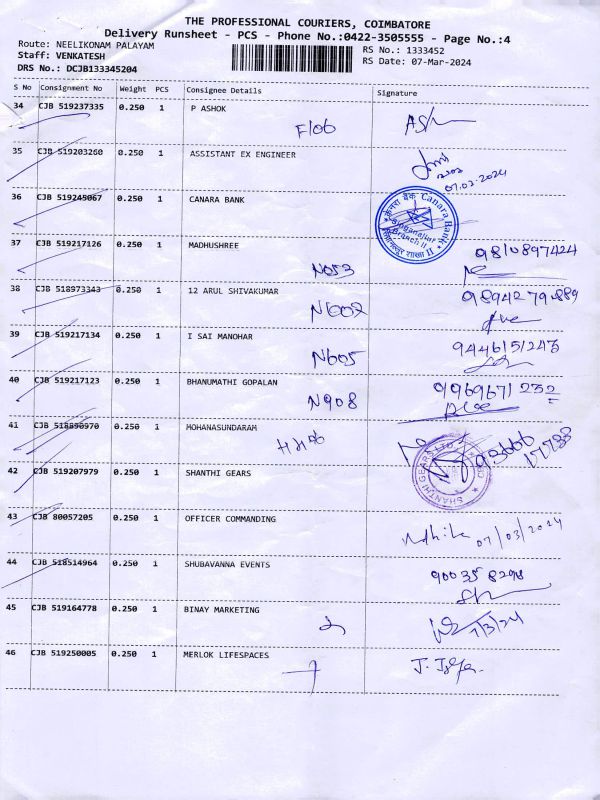 THE PROFESSIONAL COURIERS, COIMBATORE
Delivery Runsheet - PCS - Phone No.:0422-3505555 - Page No.:4
Route: NEELIKONAM PALAYAM
RS No.: 1333452
Staff: VENKATESH
RS Date: 07-Mar-2024
DRS No.: DCJB133345204
S No Consignment No Weight PCS Consignee Details Signature
34 CJB 519237335 0.250 1 P ASHOK
F106
35 CJB 519203260 0.250 1 ASSISTANT EX ENGINEER
07.03.2024
36 CJB 519245067 0.250 1 CANARA BANK
केनरा बैंक Canara Bank
Branch II
37 CJB 519217126 0.250 1 MADHUSHREE
N053 9810897424
38 CJB 518973343 0.250 1 12 ARUL SHIVAKUMAR
N602 9894279889
39 CJB 519217134 0.250 1 I SAI MANOHAR
N605 9446151243
40 CJB 519217123 0.250 1 BHANUMATHI GOPALAN
N908 9969671232
41 CJB 518890970 0.250 1 MOHANASUNDARAM
42 CJB 519207979 0.250 1 SHANTHI GEARS
SHANTHI GEARS LTD
43 CJB 80057205 0.250 1 OFFICER COMMANDING
07/03/2024
44 CJB 518514964 0.250 1 SHUBAVANNA EVENTS
90035 8298
45 CJB 519164778 0.250 1 BINAY MARKETING
7/3/24
46 CJB 519250005 0.250 1 MERLOK LIFESPACES